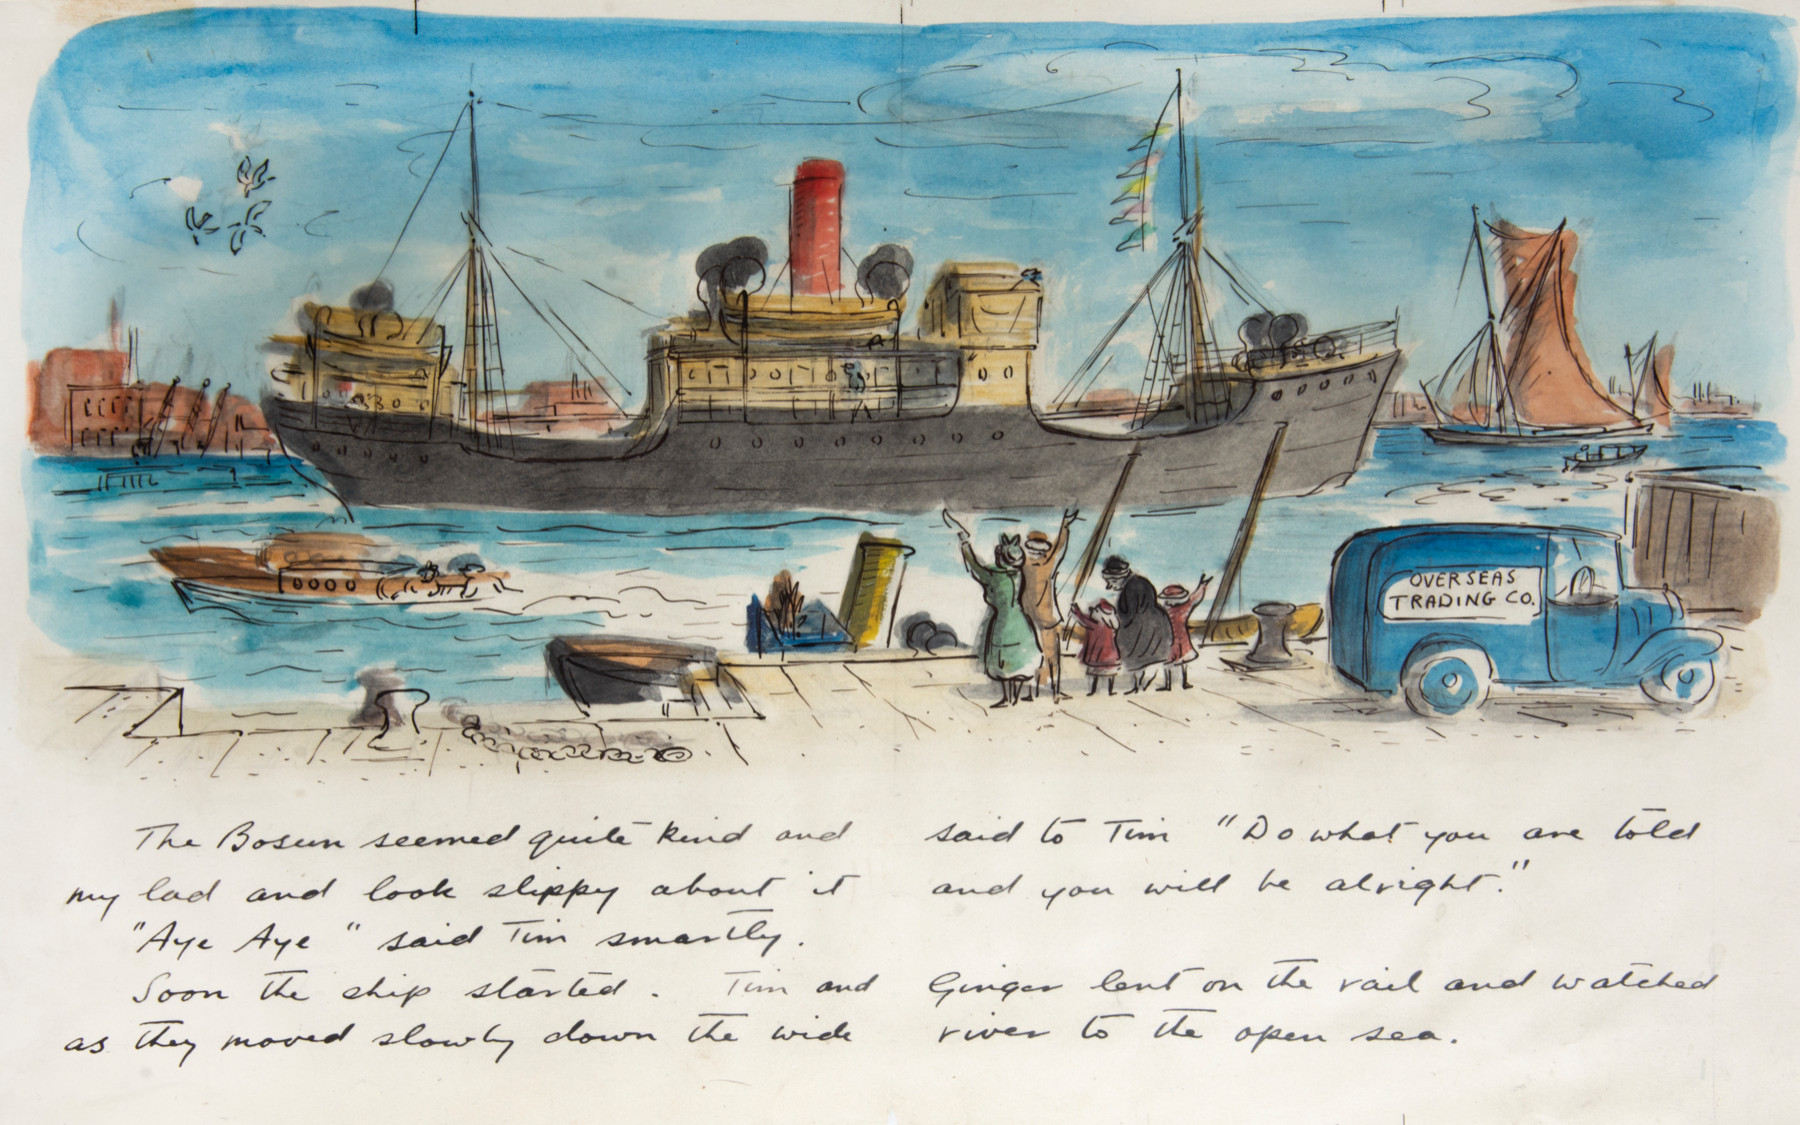 OVERSEAS
TRADING CO.
The Bosun seemed quite kind and said to Tim "Do what you are told
my lad and look slippy about it and you will be alright."
"Aye Aye" said Tim smartly.
Soon the ship started. Tim and Ginger lent on the rail and watched
as they moved slowly down the wide river to the open sea.